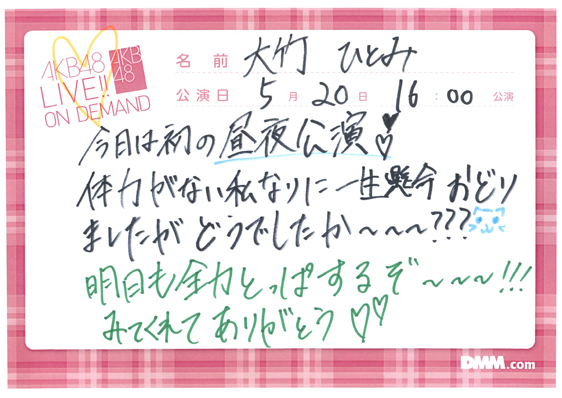 AKB48
LIVE!!
ON DEMAND
AKB
48
名前 大竹 ひとみ
公演日 5月20日 16:00 公演
今日は初の昼夜公演♥
体力がない私なりに一生懸命おどり
ましたがどうでしたか〜〜〜???
明日も全力とっぱするぞ〜〜〜!!!
みてくれてありがとう♡♡
DMM.com